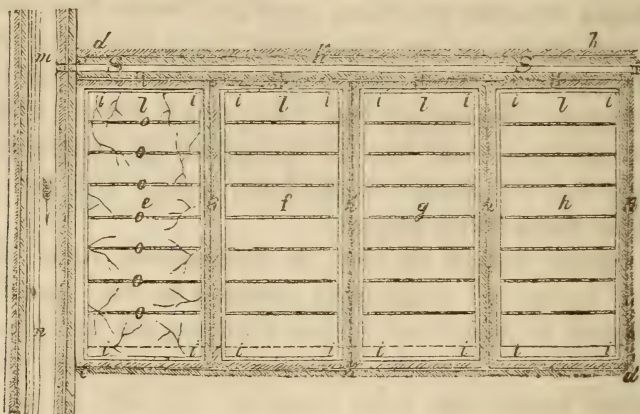 d h h
m S S
i l i i l i i l i i l i
o
o
o
e f g h
o
o
o
n o
i i i i i i i i
d